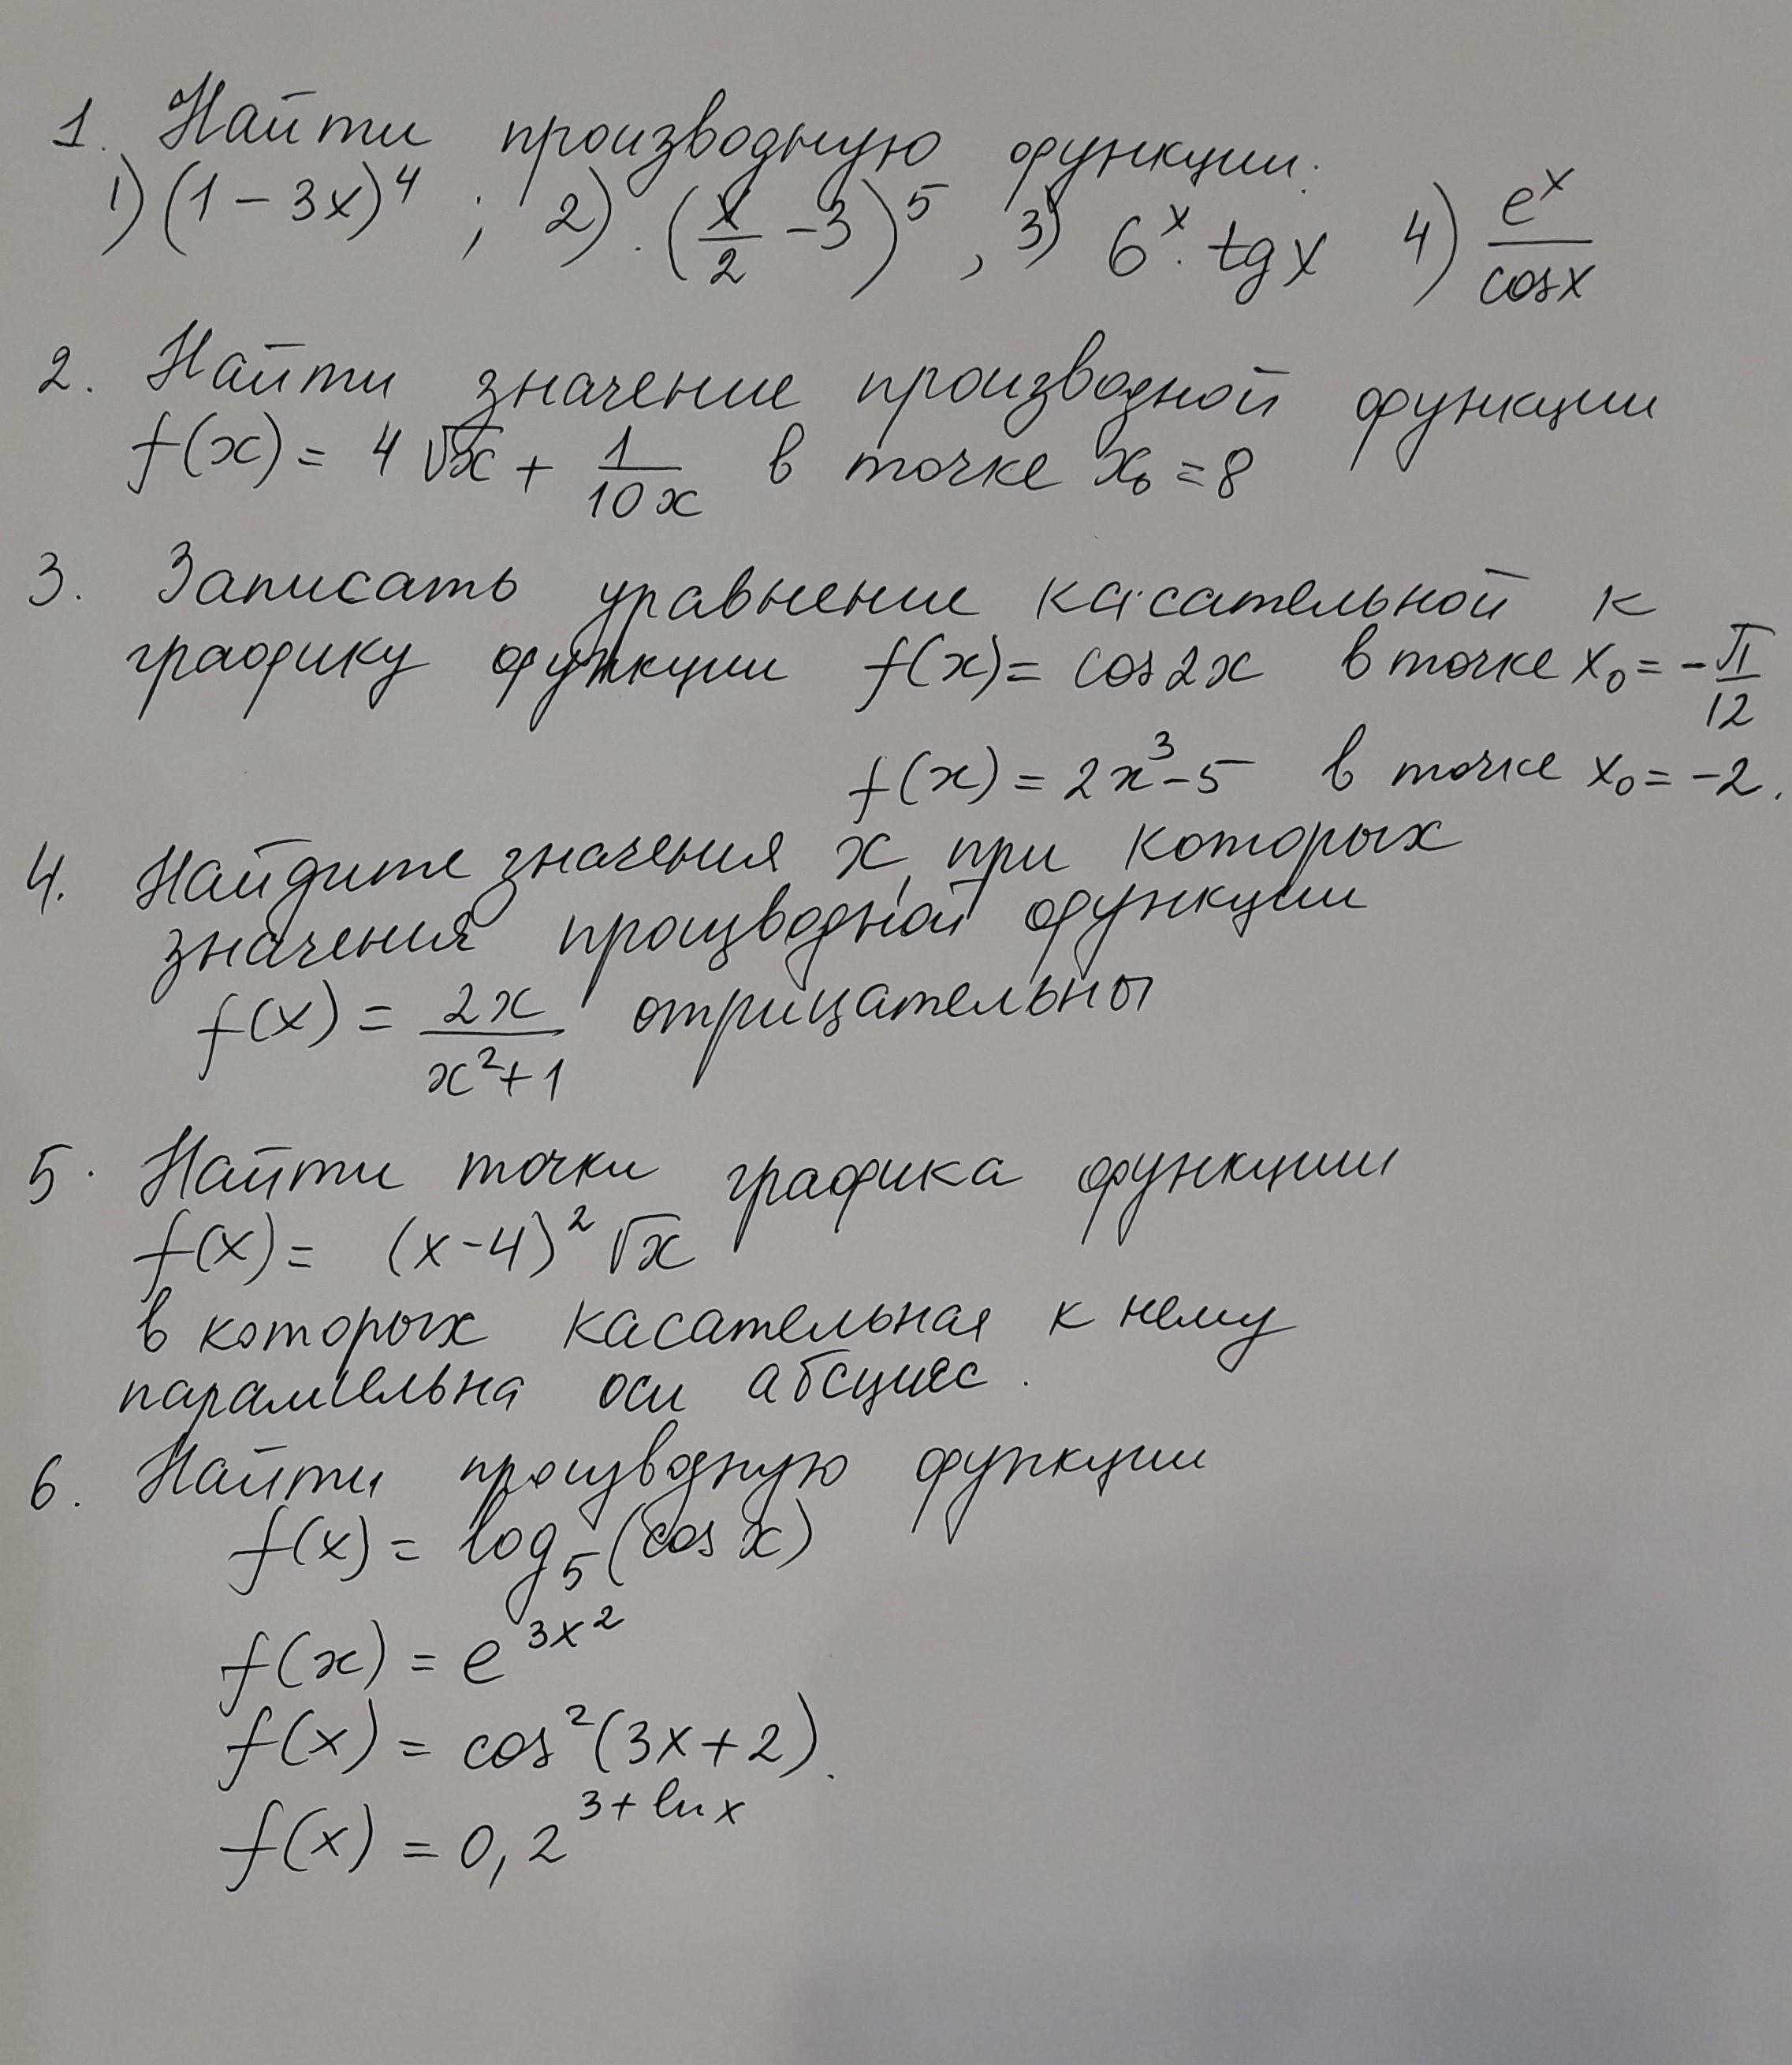 1. Найти производную функции:
1) (1 – 3x)⁴ ; 2). (x/2 – 3)⁵, 3) 6ˣ · tg x 4) eˣ/cos x
2. Найти значение производной функции
f(x) = 4√x + 1/10x в точке x₀ = 8
3. Записать уравнение касательной к
графику функции f(x) = cos 2x в точке x₀ = –π/12
f(x) = 2x³ – 5 в точке x₀ = –2.
4. Найдите значения x, при которых
значения производной функции
f(x) = 2x/x²+1 отрицательны
5. Найти точки графика функции
f(x) = (x – 4)² √x
в которых касательная к нему
параллельна оси абсцисс.
6. Найти производную функции
f(x) = log₅(cos x)
f(x) = e^3x²
f(x) = cos²(3x + 2).
f(x) = 0,2^3 + ln x